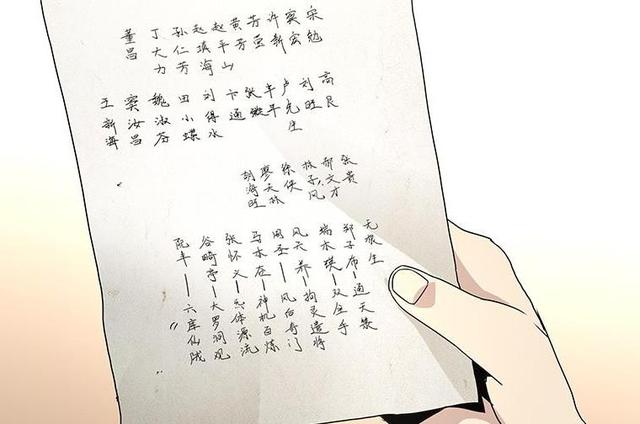 宋勉
窦宏
许新
芳萤
黄芳
赵平山
赵璜海
孙仁芳
丁大力
董昌
高艮
刘旺
卢先生
丰平
张微
卞通
刘得水
田小蝶
魏淑芬
窦汝昌
王新海
张贵
郝文才
林子风
徐侠
廖天林
胡海旺
无根生
郑子布——通天箓
端木瑛——双全手
风天养——拘灵遣将
周圣——风后奇门
马本在——神机百炼
张怀义——炁体源流
谷畸亭——大罗洞观
阮丰——六库仙贼